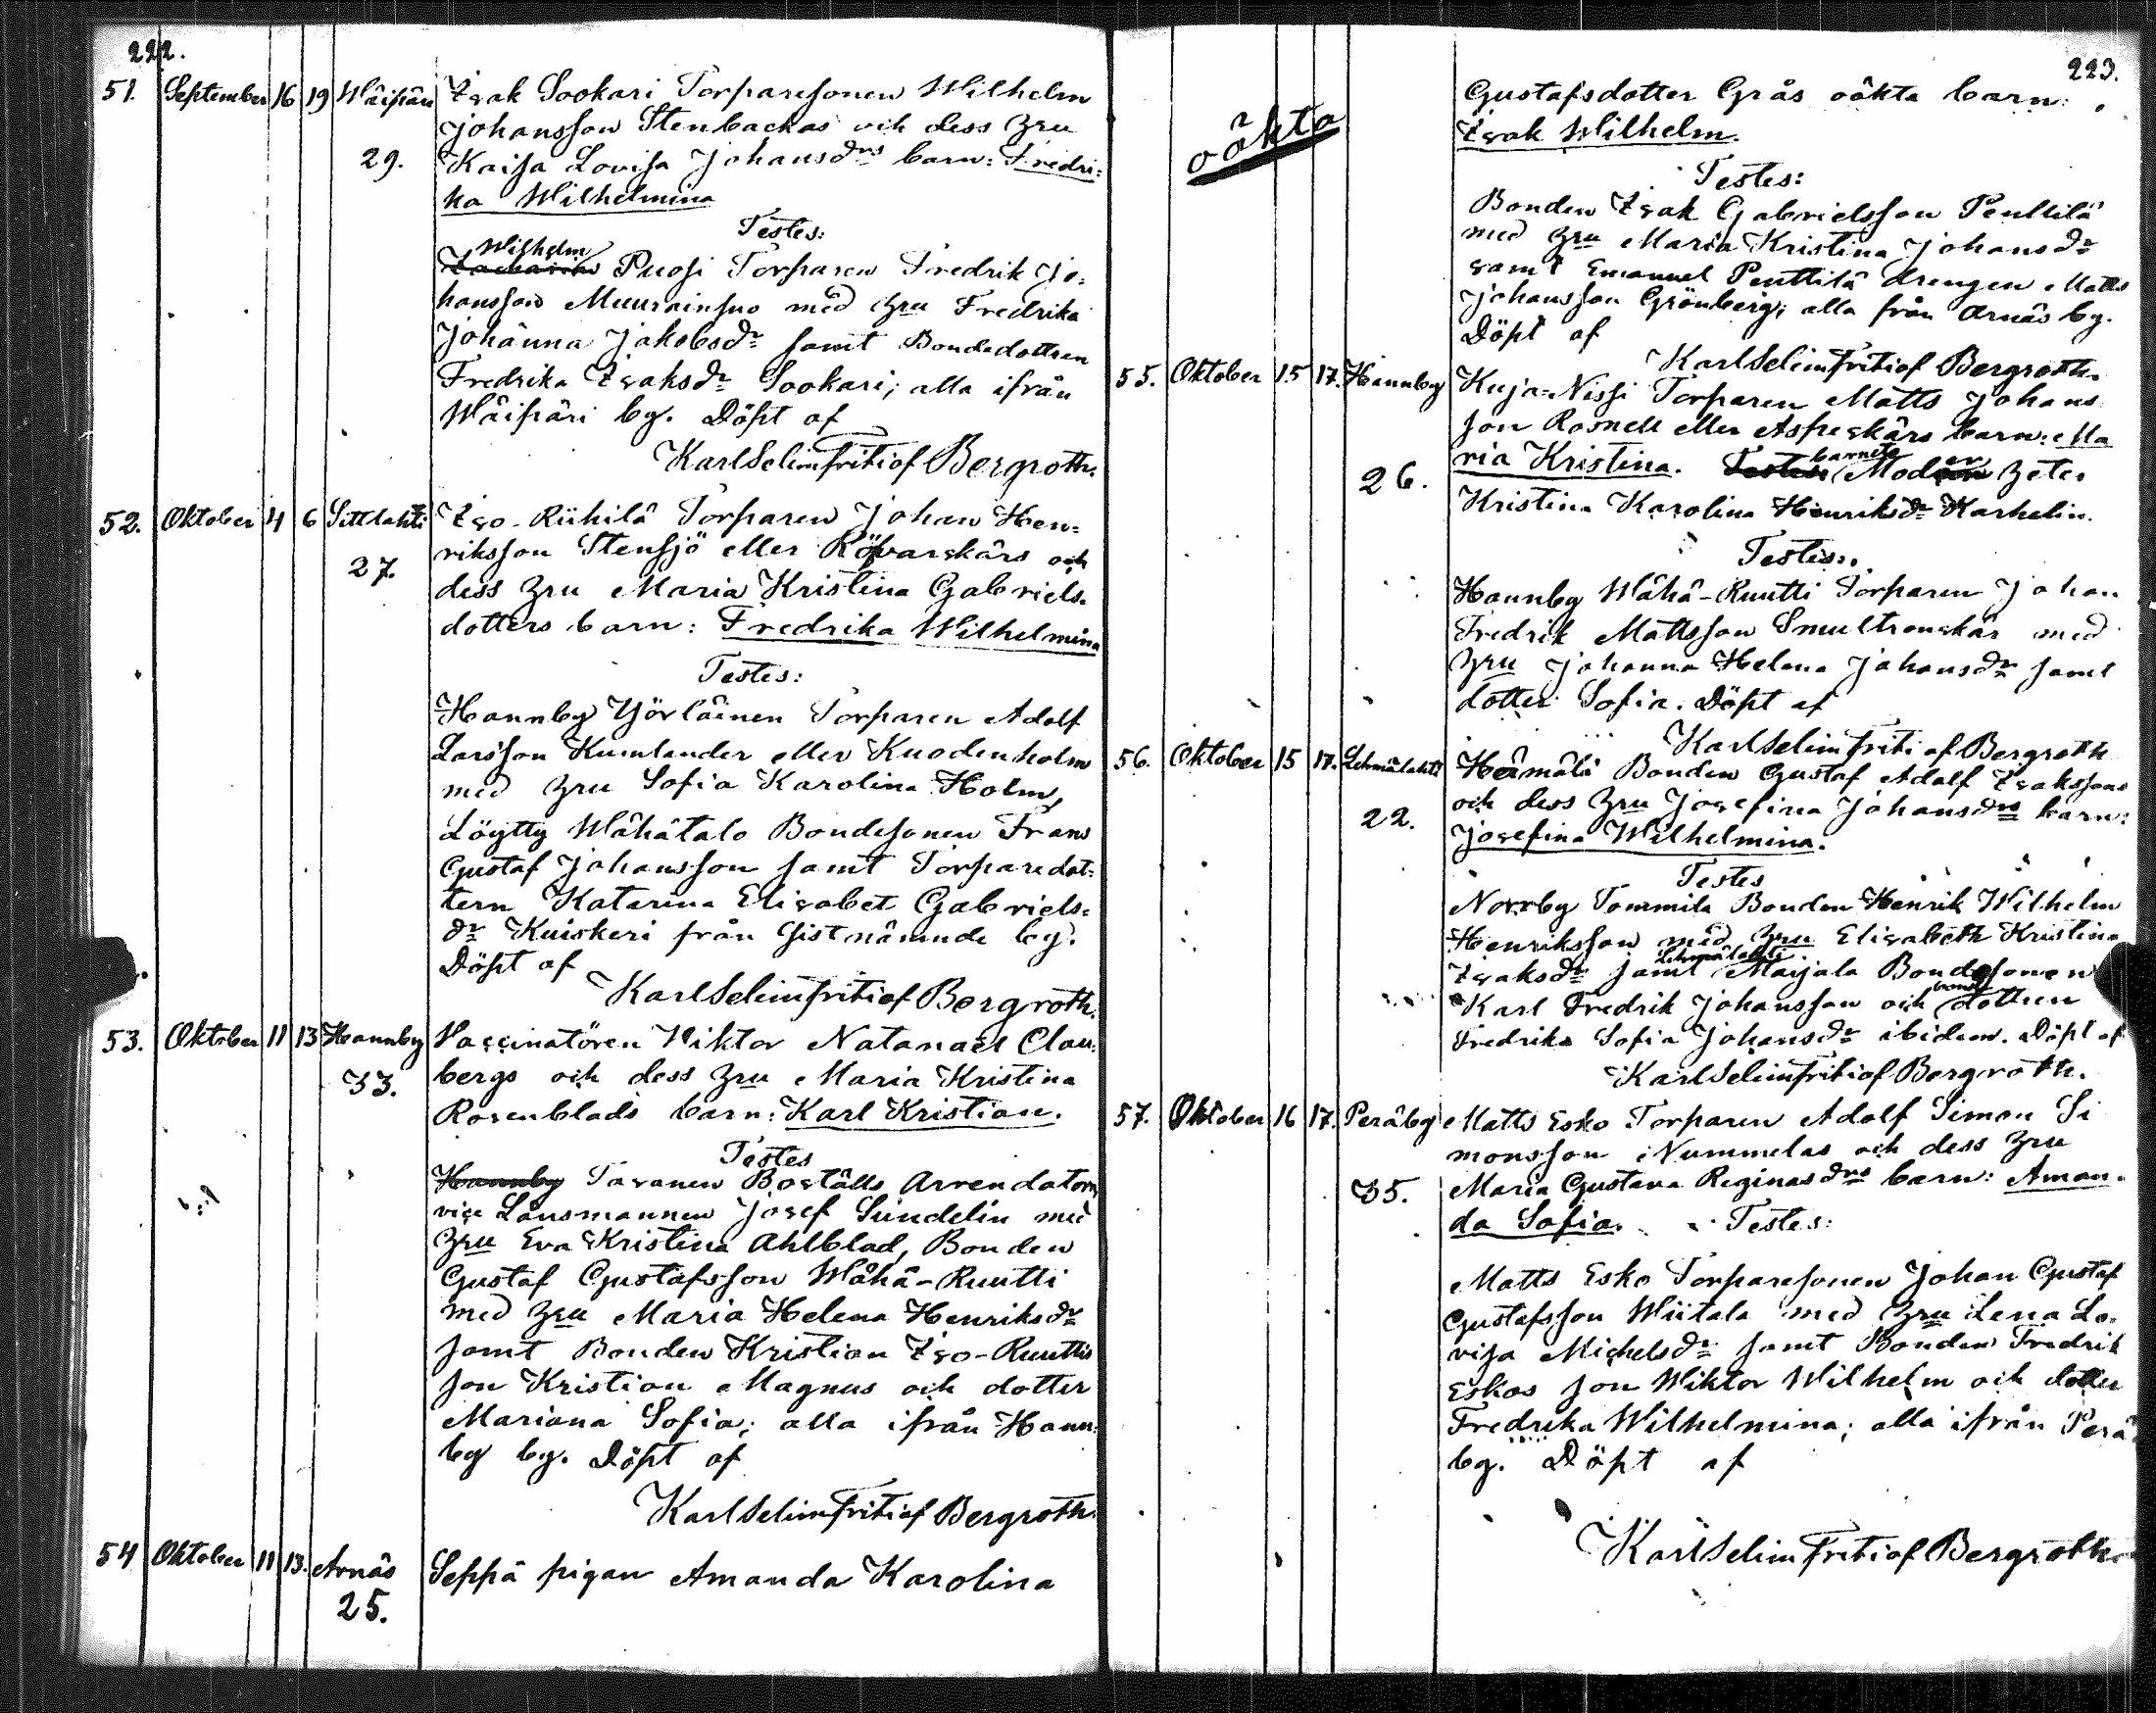 222.
51. September 16 19 Wäipäri Isak Sookari Torparesonen Wilhelm
Johansson Stenbackas och dess hru
29. Kaisa Lovisa Johansdrs barn: Fredri-
ka Wilhelmina
Testes:
Wilhelm
Puosi Torparen Fredrik Jo-
hansson Muurainsuo med hru Fredrika
Johanna Jakobsdr samt Bondedottren
Fredrika Isaksdr Sookari; alla ifrån
Wäipäri by. Döpt af
Karl Selim Fritiof Bergroth.
52. Oktober 4 6 Sittlahti Iso-Riihilä Torparen Johan Hen-
riksson Stensjö eller Röfvarskärs och
27. dess hru Maria Kristina Gabriels-
dotters barn: Fredrika Wilhelmina
Testes:
Hannby Yörläinen Torparen Adolf
Larsson Kumlander eller Kuodenholm
med hru Sofia Karolina Holm,
Löytty Wähätalo Bondesonen Frans
Gustaf Johansson samt Torparedot-
tern Katarina Elisabet Gabriels-
dr Kuiskeri från sistnämnde by.
Döpt af
Karl Selim Fritiof Bergroth.
53. Oktober 11 13 Hannby Vaccinatören Viktor Natanael Clau-
33. bergs och dess hru Maria Kristina
Rosenblads barn: Karl Kristian.
Testes
Hannby Tavanen Boställs Arrendatorn
vice Länsmannen Josef Sundelin med
hru Eva Kristina Ahlblad, Bonden
Gustaf Gustafsson Wähä-Ruutti
med hru Maria Helena Henriksdr
samt Bonden Kristian Iso-Ruuttis
son Kristian Magnus och dotter
Mariana Sofia; alla ifrån Hann-
by by. Döpt af
Karl Selim Fritiof Bergroth.
54 Oktober 11 13. Arnäs Seppä pigan Amanda Karolina
25.
223.
Gustafsdotter Grås oäkta barn:
oäkta
Isak Wilhelm.
Testes:
Bonden Isak Gabrielsson Penttilä
med hru Maria Kristina Johansdr
samt Emanuel Penttilä drengen Matts
Johansson Grönberg; alla från Arnäs by.
Döpt af
Karl Selim Fritiof Bergroth.
55. Oktober 15 17. Hannby Kuja-Nissi Torparen Matts Johans
son Rosnell eller Aspeskärs barn: Ma
26. ria Kristina. Testes: barnets Moder heter
Kristina Karolina Henriksdr Karhelin.
Testes:
Hannby Wähä-Ruutti Torparen Johan
Fredrik Mattsson Smultronskär med
hru Johanna Helena Johansdr samt
dotter Sofia. Döpt af
Karl Selim Fritiof Bergroth
56. Oktober 15 17. Lehmälahti Heimälä Bonden Gustaf Adolf Isakssons
22. och dess hru Josefina Johansdrs barn:
Josefina Wilhelmina.
Testes
Norrby Tommila Bonden Henrik Wilhelm
Henriksson med hru Elisabeth Kristina
Lehmälahti
Isaksdr samt Marjala Bondesonen
Karl Fredrik Johansson och dottren
Fredrika Sofia Johansdr ibidem. Döpt af
Karl Selim Fritiof Bergroth.
57. Oktober 16 17. Peräby Matts Esko Torparen Adolf Simon Si
monsson Nummelas och dess hru
35. Maria Gustava Reginasdrs barn: Aman-
da Sofia. Testes:
Matts Esko Torparesonen Johan Gustaf
Gustafsson Wiitala med hru Lena Lo-
visa Michelsdr samt Bonden Fredrik
Eskos son Wiktor Wilhelm och dotter
Fredrika Wilhelmina; alla ifrån Perä
by. Döpt af
Karl Selim Fritiof Bergroth